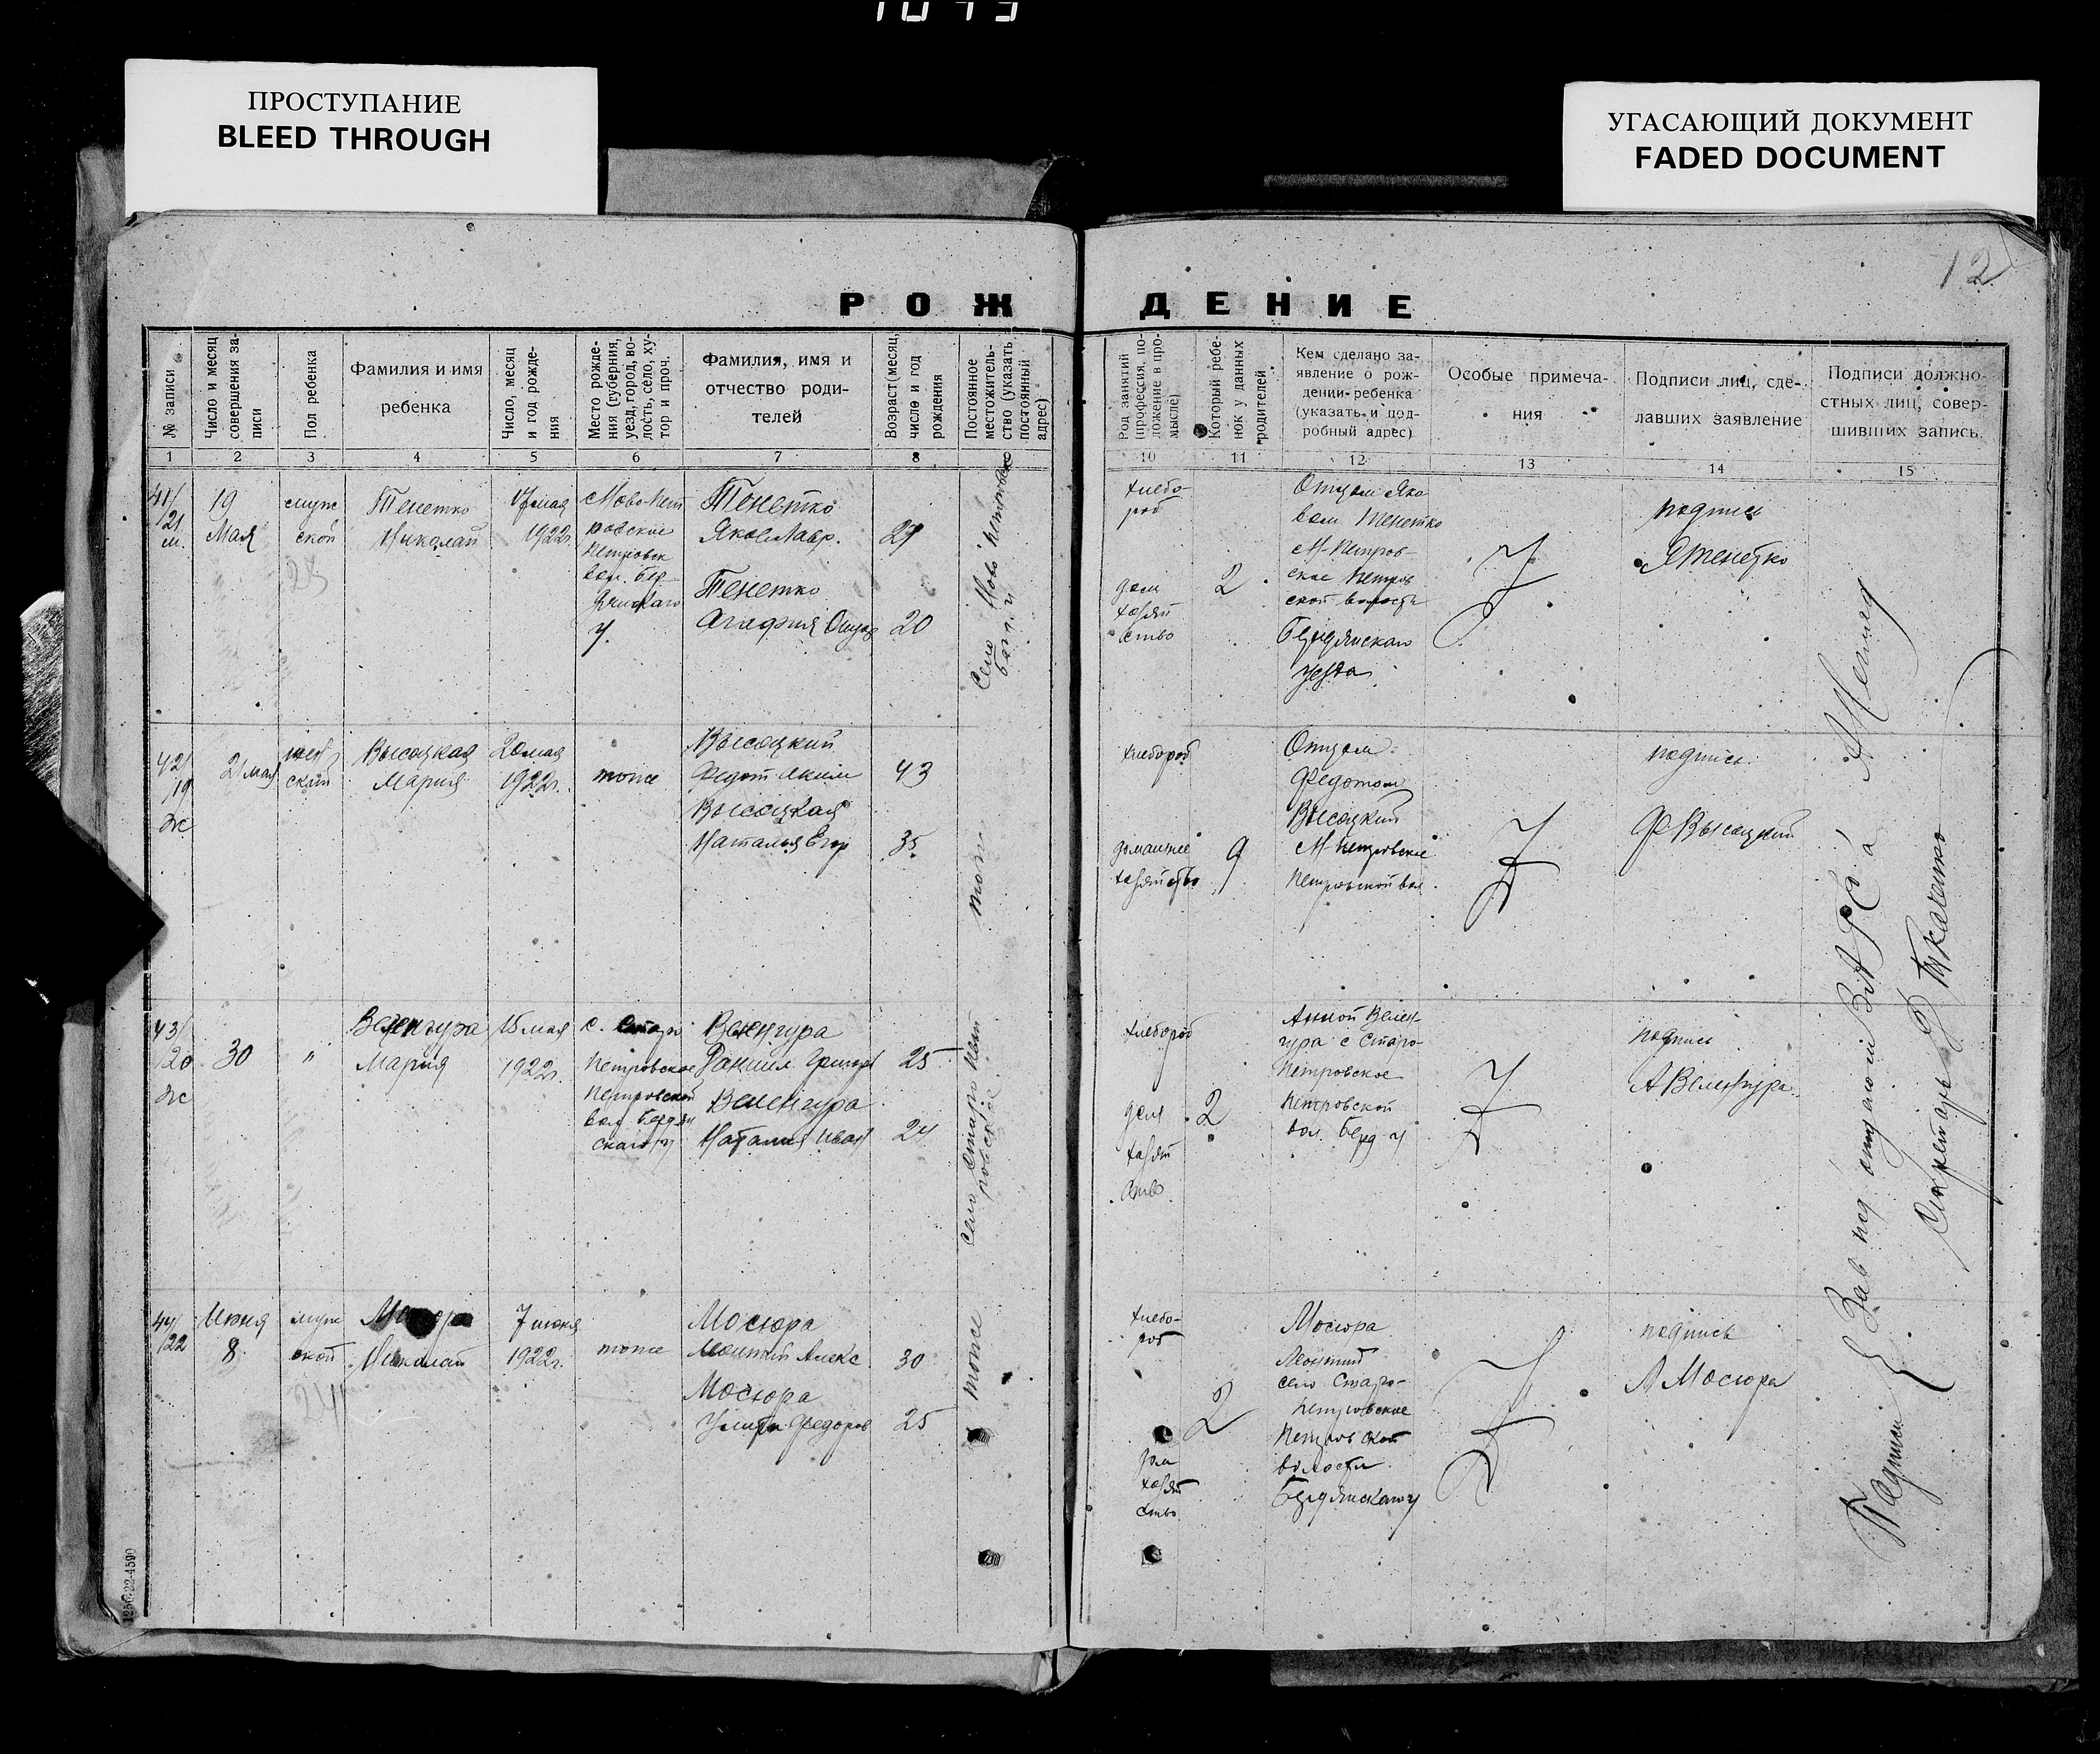 ПРОСТУПАНИЕ
BLEED THROUGH
УГАСАЮЩИЙ ДОКУМЕНТ
FADED DOCUMENT
12
РОЖДЕНИЕ
№ записи
Число и месяц
совершения за-
писи
Пол ребенка
Фамилия и имя
ребенка
Число, месяц
и год рожде-
ния
Место рожде-
ния (губерния,
уезд, город, во-
лость, село, ху-
тор и проч.
Фамилия, имя и
отчество роди-
телей
Возраст (месяц,
число и год
рождения
Постоянное
местожитель-
ство (указать
постоянный
адрес)
Род занятий
(профессия, по-
ложение в про-
мысле)
Который ребе-
нок у данных
родителей
Кем сделано за-
явление о рож-
дении ребенка
(указать и под-
робный адрес)
Особые примеча-
ния
Подписи лиц, сде-
лавших заявление
Подписи должно-
стных лиц, совер-
шивших запись
1 2 3 4 5 6 7 8
10 11 12 13 14 15
41/
21
м.
19
Мая
муж
ской
Тенетко
Николай
1922г.
Ново-Пет
ровское
Петровск
вол. Бер
дянскаго
у.
Тенетко
Яков Лавр.
29
Тенетко
Агафия
20
Село Ново Петровское
Берд. у
хлебо-
род
дом
хазяй
ство
2
Отцом Яко
вом Тенетко
Н-Петров-
ское Петров
ской волости
Бердянскаго
уезда
подпись
ЯТенетко
42/
19
ж
21 мая
жен
ский
Высоцкая
Мария
20 мая
1922г.
тоже
Высоцкий
Федот Аким
43
Высоцкая
Наталья Егор
35
тоже
хлебороб
домашнее
хазяйство
9
Отцом
Федотом
Высоцкий
Н-Петровское
Петровской вол.
подпись
Ф Высоцкий
43/
20
ж
30
"
Веленгура
Мария
15 мая
1922г.
с. Старо
Петровское
Петровской
вол. Бердян
скаго у
Веленгура
Даниил Григор
25
Веленгура
Наталия Иван
24
Село Старо Пет
ровское
хлебороб
дом
хазяй
ство
2
Анной Велен-
гура с Старо-
Петровское
Петровской
вол. Берд у
подпись
АВеленгура
44/
22
Июня
8
муж
ской
Николай
7 июня
1922г.
тоже
Мосюра
Леонтий Алекс
30
Мосюра
Федоров
25
тоже
хлебо-
роб
дом
хазяй
ство
2
Мосюра
Леонтий
село Старо-
Петровское
Петровской
волости
Бердянскаго у
подпись
Л Мосюра
Подписи {
Зав под отделом
Секретарь Ткаченко
24